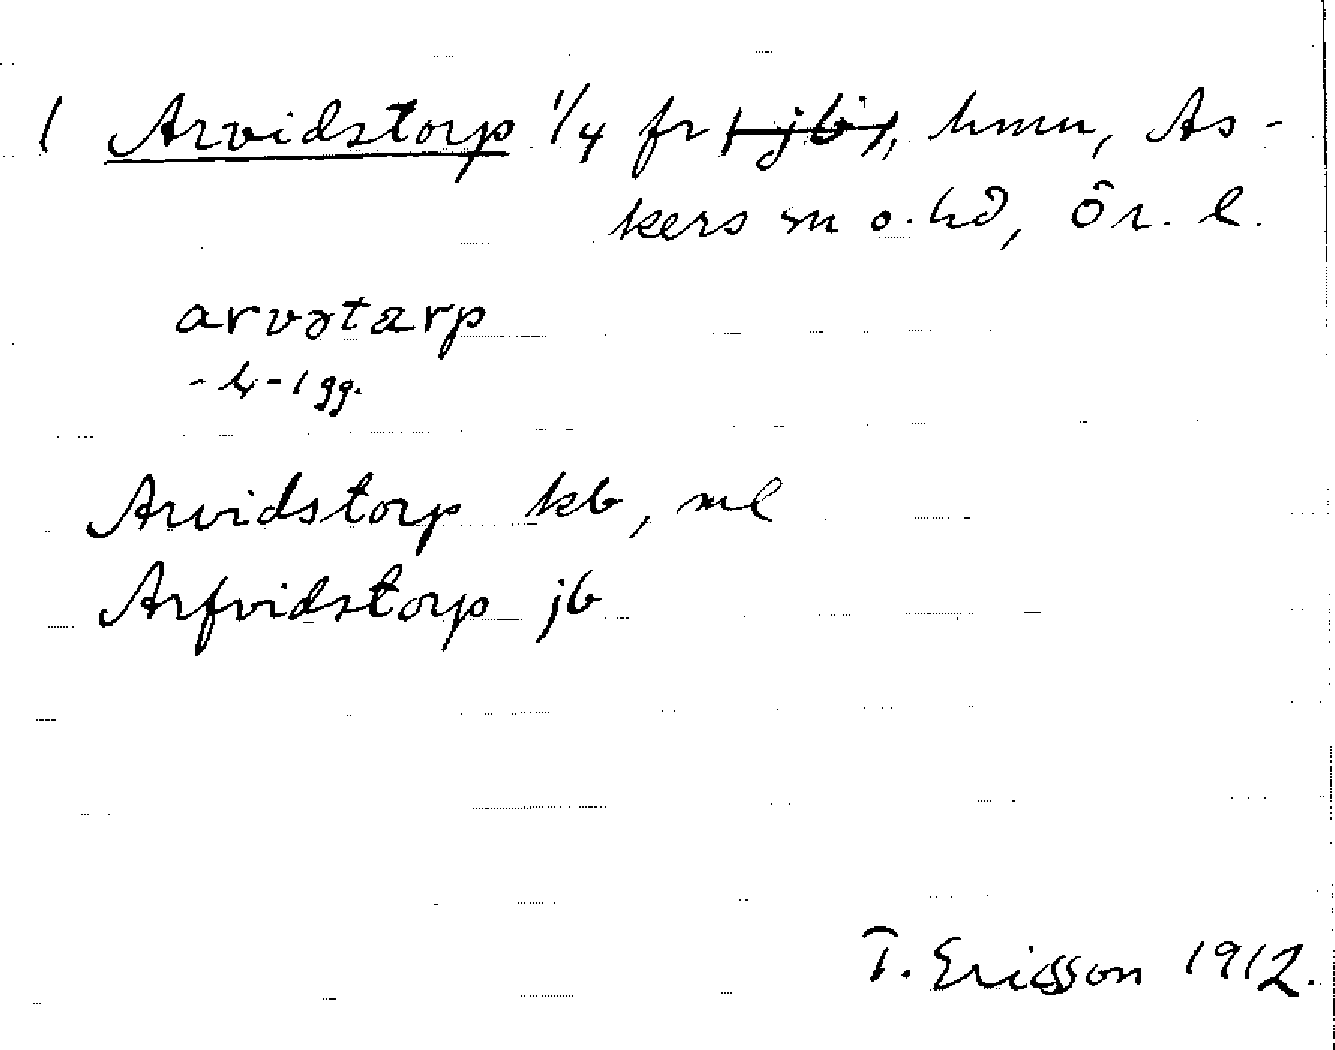 1 Arvidstorp 1/4 fr (jb), hmn, As-
kers sn o. hd, Ör. l.
arvətarp
Arvidstorp kb, ml
Arfvidstorp jb
T. Ericsson 1912.